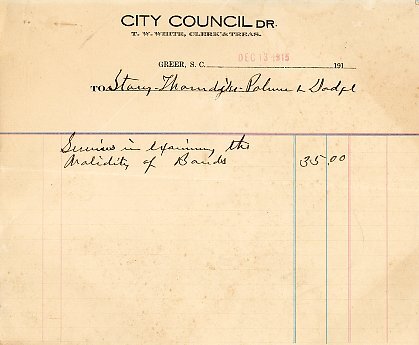 CITY COUNCIL DR.
T. W. WHITE, CLERK & TREAS.
GREER, S. C. DEC 13 1915 191
TO Storey-Thorndike-Palmer & Dodge
Services in examining the
Validity of Bonds 35.00